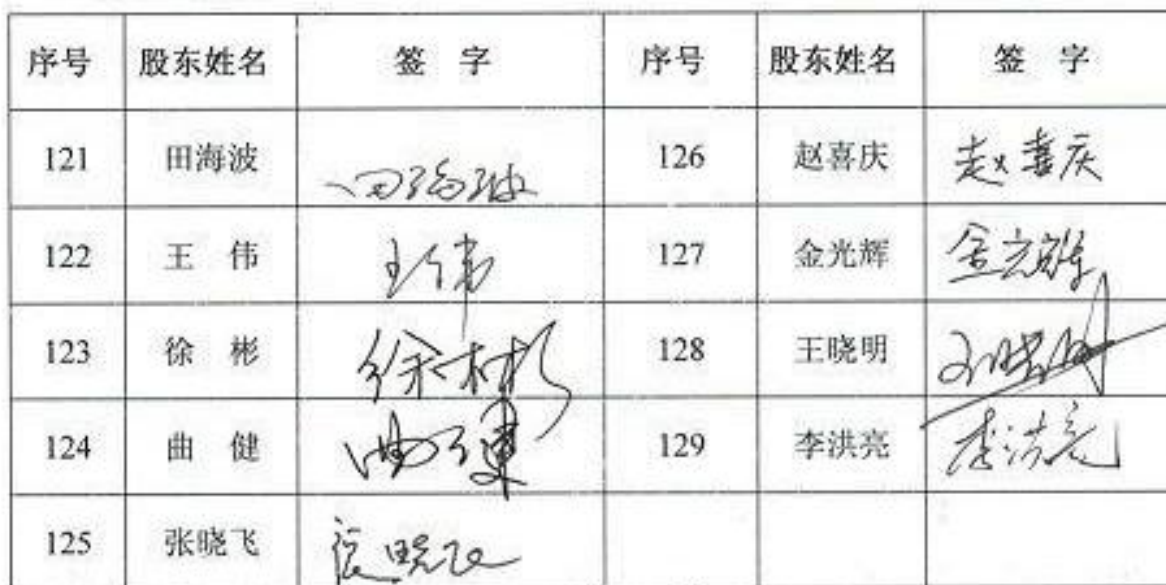 序号 股东姓名 签 字 序号 股东姓名 签 字
121 田海波 田海波 126 赵喜庆 赵喜庆
122 王 伟 王伟 127 金光辉 金光辉
123 徐 彬 徐彬 128 王晓明 王晓明
124 曲 健 曲健 129 李洪亮 李洪亮
125 张晓飞 张晓飞